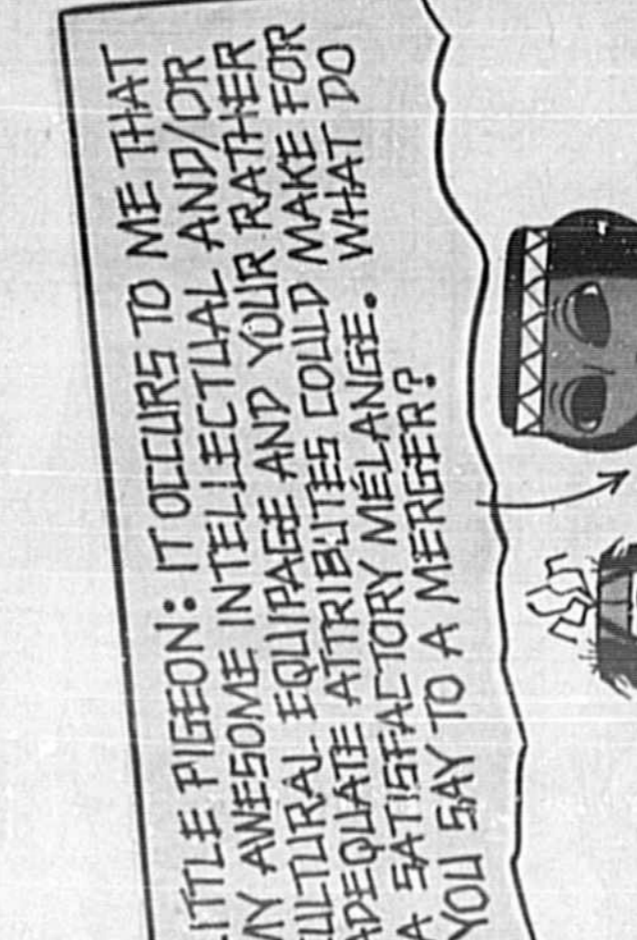 LITTLE PIGEON: IT OCCURS TO ME THAT
MY AWESOME INTELLECTUAL AND/OR
CULTURAL EQUIPAGE AND YOUR RATHER
ADEQUATE ATTRIBUTES COULD MAKE FOR
A SATISFACTORY MÉLANGE. WHAT DO
YOU SAY TO A MERGER?